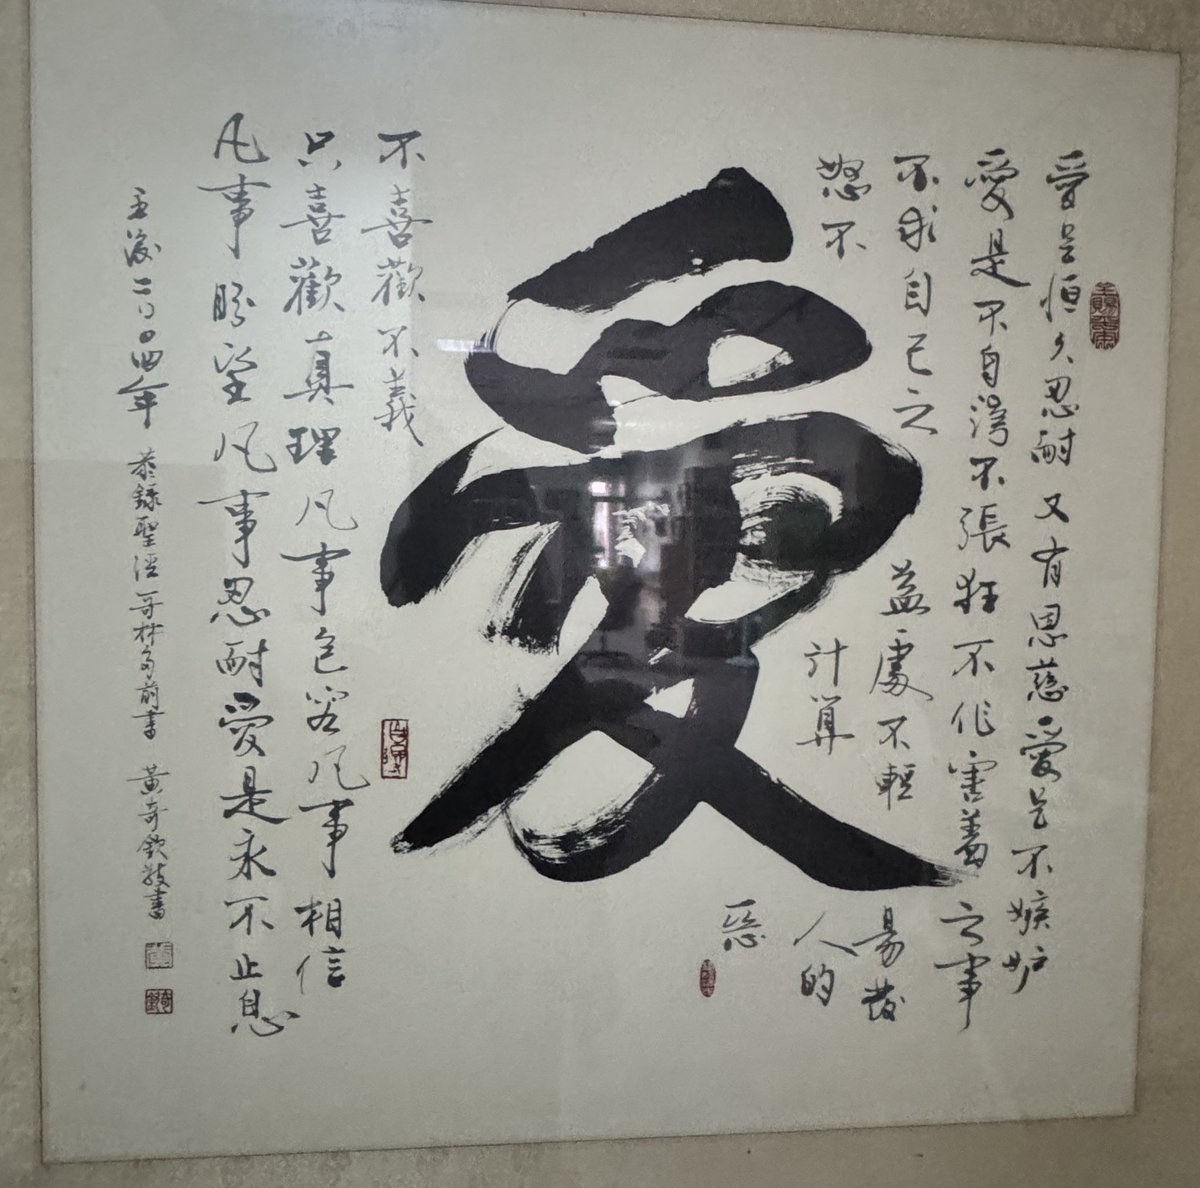 愛是恒久忍耐又有恩慈愛是不嫉妒
愛是不自誇不張狂不作害羞之事
不求自己之益處不輕易發
怒不計算人的
惡
愛
不喜歡不義
只喜歡真理凡事包容凡事相信
凡事盼望凡事忍耐愛是永不止息
主後二〇〇四年 恭錄聖經哥林多前書 黃奇欽敬書